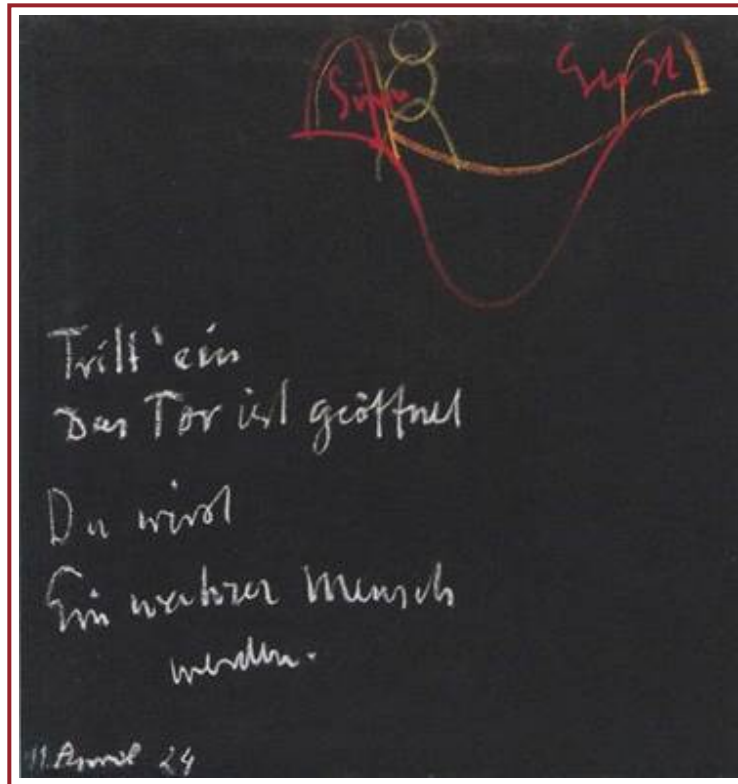 Sinn Geist
Tritt' ein
Das Tor ist geöffnet
Du wirst
Ein wahrer Mensch
werden.
11. April 24